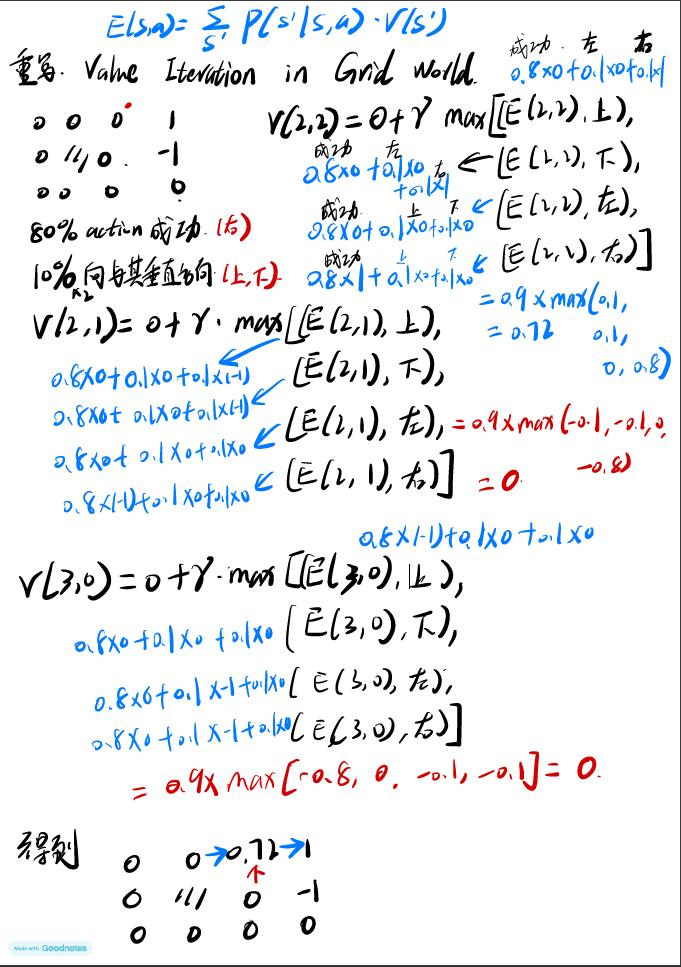 E(s,a)= Σs' P(s'|s,a)·V(s')
重写. Value Iteration in Grid World.
成功. 左 右
0.8x0+0.1x0+0.1x1
0 0 0 1
0 /// 0. -1
0 0 0 0
80% action 成功. (右)
10% 向与其垂直方向 (上,下).
x2
V(2,2) = 0+γ max[(E(2,2),上),
成功 左 右
0.8x0+0.1x0+0.1x1
← (E(2,2),下),
成功. 上 下
0.8x0+0.1x0+0.1x0
(E(2,2),左),
成功 上 下
0.8x1+0.1x0+0.1x0
(E(2,2),右)]
= 0.9 x max(0.1, 0.1, 0, 0.8)
= 0.72
V(2,1)= 0+γ·max[(E(2,1),上),
0.8x0+0.1x0+0.1x(-1)
(E(2,1),下),
0.8x0+ 0.1x0+0.1x(-1)
(E(2,1),左),
0.8x0+ 0.1x0+0.1x0
(E(2,1),右)]
0.8x(-1)+0.1x0+0.1x0
= 0.9xmax(-0.1,-0.1,0, -0.8)
= 0.
0.8x(-1)+0.1x0+0.1x0
V(3,0)=0+γ·max[(E(3,0),上),
0.8x0+0.1x0+0.1x0 (E(3,0),下),
0.8x0+0.1x-1+0.1x0 (E(3,0),左),
0.8x0+0.1x-1+0.1x0 (E(3,0),右)]
= 0.9x max[-0.8, 0. -0.1, -0.1] = 0.
得到
0 0→0.72→1
↑
0 /// 0 -1
0 0 0 0
Made with Goodnotes